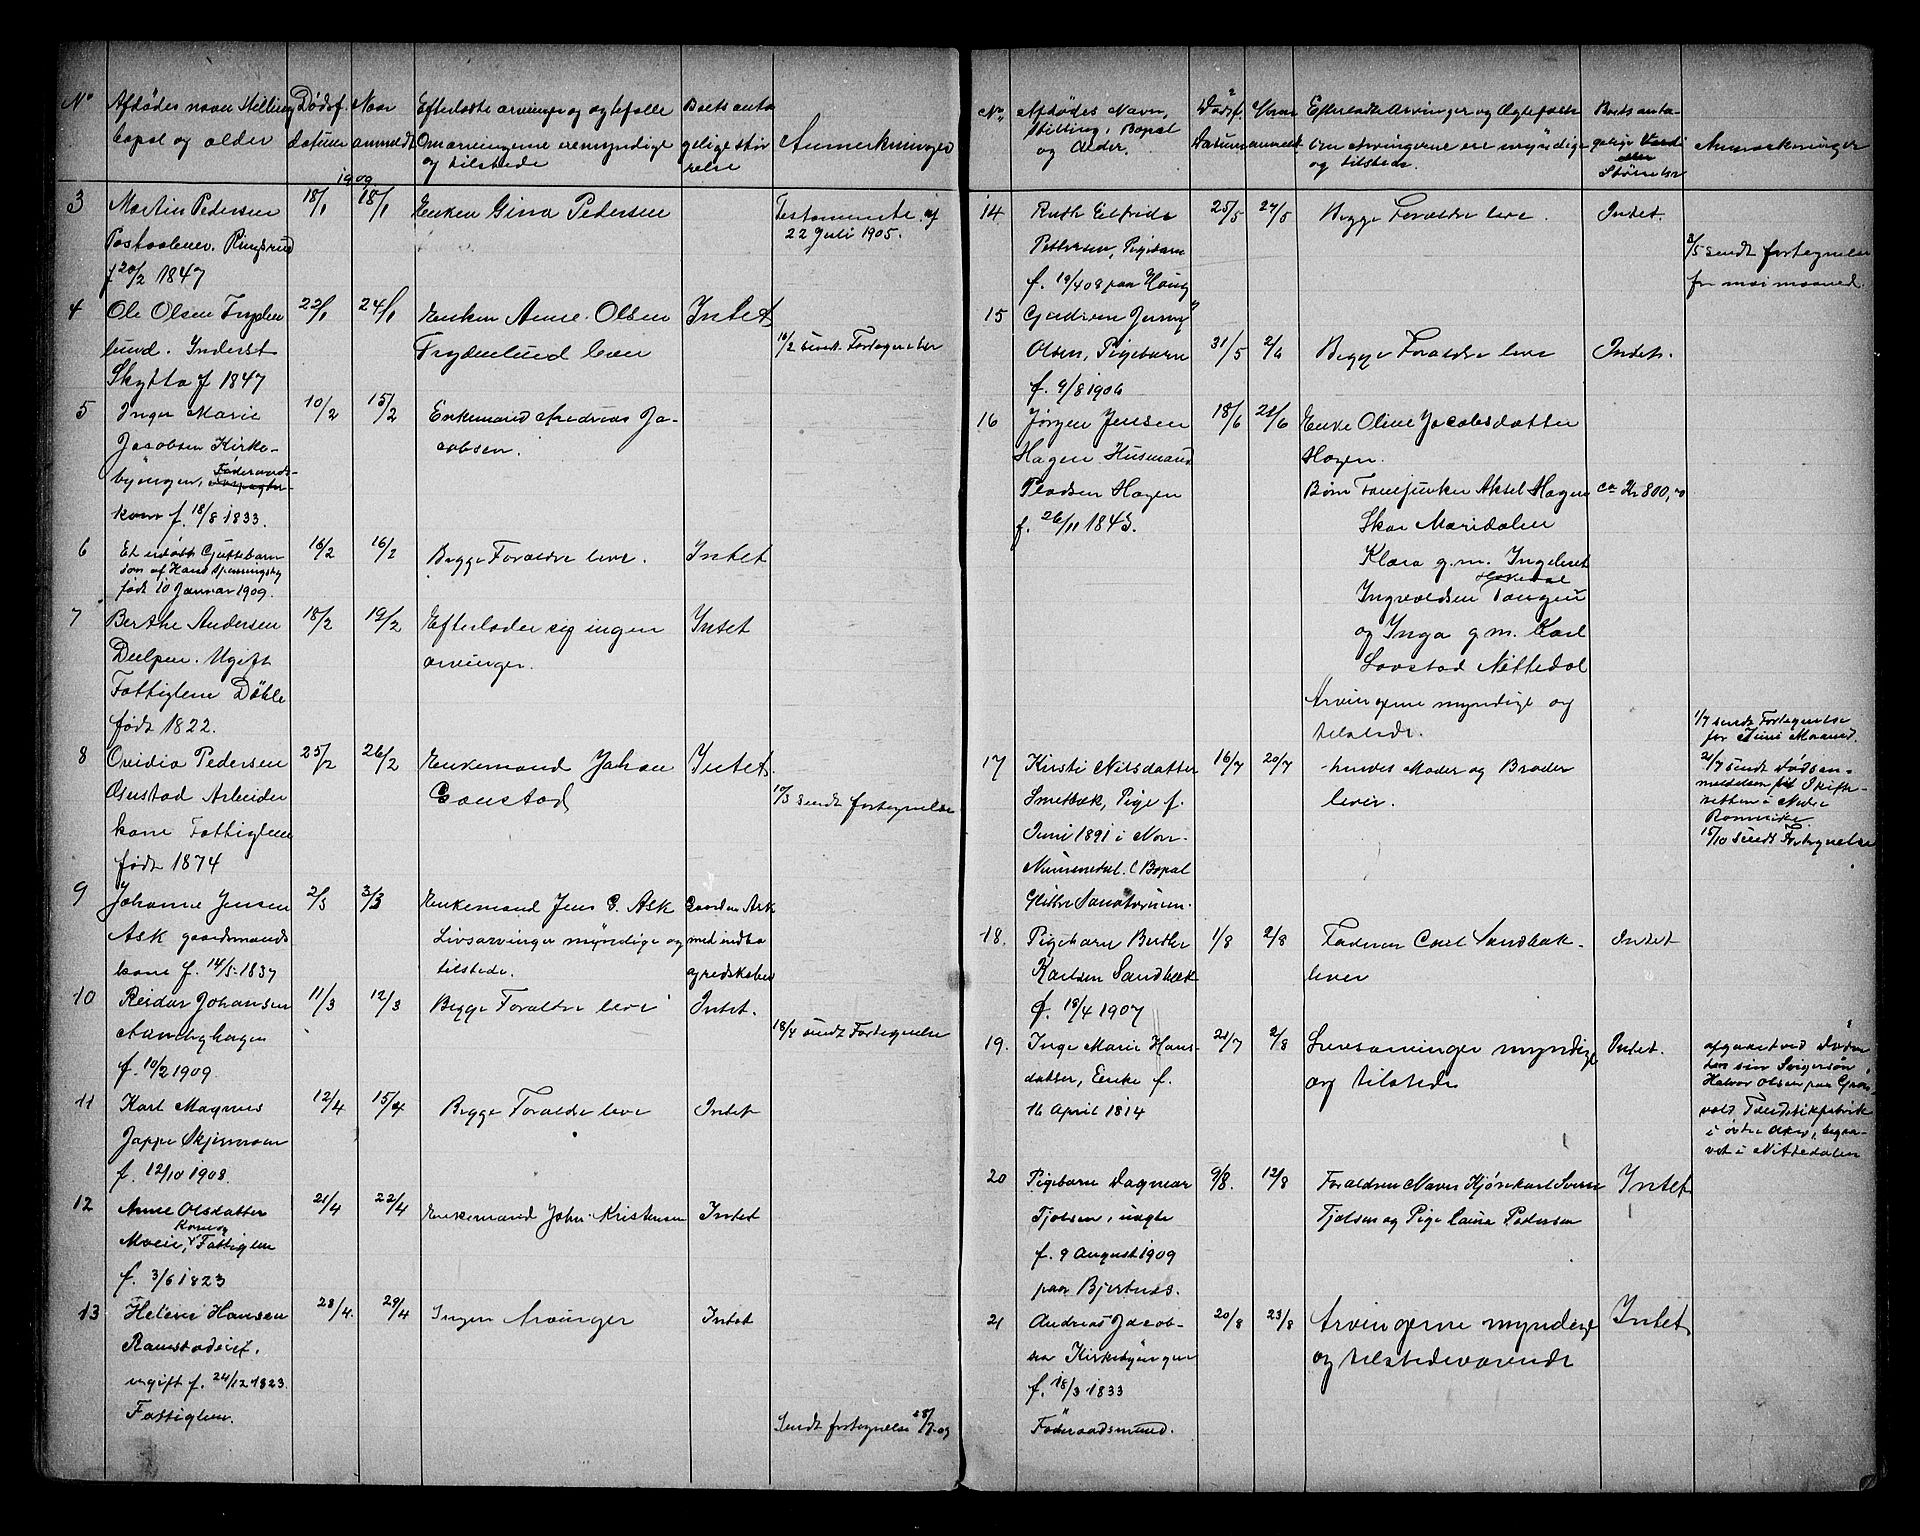 No Afdødes navn Stilling bopæl og alder
Dødsf. datum
Naar anmeldt
Efterladte arvinger og ægtefælle
Om arvingerne ere myndige og tilstede
Boets antagelige størrelse
Anmerkninger
1909
3 Martin Pedersen 18/1 18/1 Enken Gina Pedersen Testamente af
22 Juli 1905.
Postaabner. Ringsrud
f 20/2 1847
4 Ole Olsen Fryden 22/1 24/1 Enken Anne Olsen Intet
lund. Inderst Frydenlund lever
10/2 sendt Fortegnelse
Skytta f 1847
5 Inger Marie 10/2 15/2 Enkemand Andreas Ja-
Jacobsen Kirke- cobsen.
byengen, Føderaads-
kone f. 18/8 1833.
6 Et udøbt Guttebarn 16/2 16/2 Begge Forældre leve. Intet
søn af Hans Spenningsby
født 10 Januar 1909.
7 Berthe Andersen 18/2 19/2 Efterlader sig ingen Intet
Dælpen. Ugift arvinger.
Fattiglem Døhle
født 1822.
8 Ovidia Pedersen 25/2 26/2 Enkemand Johan Intet
Gaustad Arbeider Gaustad
10/3 sendt fortegnelse
kone Fattiglem
født 1874
9 Johanne Jensen 2/3 3/3 Enkemand Jens G. Ask Gaarden Ask
Ask gaardmands Livsarvinger myndige og med indbo
kone f. 14/5-1837 tilstede. og redskaber
10 Reidar Johansen 11/3 12/3 Begge Forældre leve Intet.
18/4 sendt Fortegnelse
Aanebyhagen
f. 10/2 1909.
11 Karl Magnus 12/4 15/4 Begge Forældre leve Intet
Jappe Skjønnaaen
f. 12/10 1908.
12 Anne Olsdatter 21/4 22/4 Enkemand John Kristensen Intet
Kone og
Moeie, Fattiglem
f. 3/6 1823
13 Helene Hansen 28/4. 29/4 Ingen Arvinger Intet
Ramstadeiet.
ugift f. 24/12 1823.
Fattiglem.
Sendt fortegnelse
No. Afdødes Navn, Stilling, Bopæl og Alder.
Dødsf. Datum
Naar anmeldt
Efterladte Arvinger og Ægtefælle
om Arvingerne ere myndige og tilstede
Boets antagelige Værdi eller Størrelse
Anmerkninger
14. Ruth Elfrida 25/5 27/5 Begge Forældre leve. Intet.
Pettersen, Pigebarn
3/5 sendt fortegnelse
for mai maaned.
f. 19/4 08 paa Haug
15 Gudrun Jenny
Olsen, Pigebarn 31/5 2/6 Begge Forældre leve Intet.
f. 9/8 1906
16 Jørgen Jensen 18/6 21/6 Enke Oline Jacobsdatter
Hagen Husmand Hagen.
Pladsen Hagen Børn Aksel Hagen ca Kr 800,00
f. 26/11 1843. Skar Maridalen
Klara g.m. Ingebret
Hakedal
Ingvaldsen Tangen
og Inga g.m. Karl
Løvstad Nittedal
Arvingerne myndige og
tilstede.
1/7 sendt Fortegnelse
for Juni Maaned.
17 Kirsti Nilsdatter 16/7 20/7 hendes Moder og Broder
Smetbæk, Pige f. lever.
21/7 sendt Dødsan-
meldelsen til Skifte-
retten i Nedre
Romerike.
15/10 sendt Fortegnelse
Juni 1891 i Nore
Numedal. (Bopæl
Glittre Sanatorium.
18. Pigebarn Berthe 1/8 2/8 Faderen Carl Sandbæk Intet
Karlsen Sandbæk lever
f. 18/4 1907
19. Inge Marie Hans- 21/7 2/8 Livsarvinger myndige Intet.
datter, Enke f. og tilstede
16 April 1814
afgaaet ved Døden
hos sin Svigersøn,
Halvor Olsen paa Grøn-
vold Fændstikfabrik
i østre Aker, begra-
vet i Nittedalen
20 Pigebarn Dagmar 9/8. 12/8 Forældrene Kjørekarl Sverre Intet
Tjølsen, uægte Tjølsen og Pige Laura Pedersen
f. 9 August 1909
paa Bjertnæs.
21 Andreas Jacob- 20/8 23/8 Arvingerne myndige Intet
sen Kirkebyengen og tilstedeværende
f. 18/3 1833
Føderaadsmand.